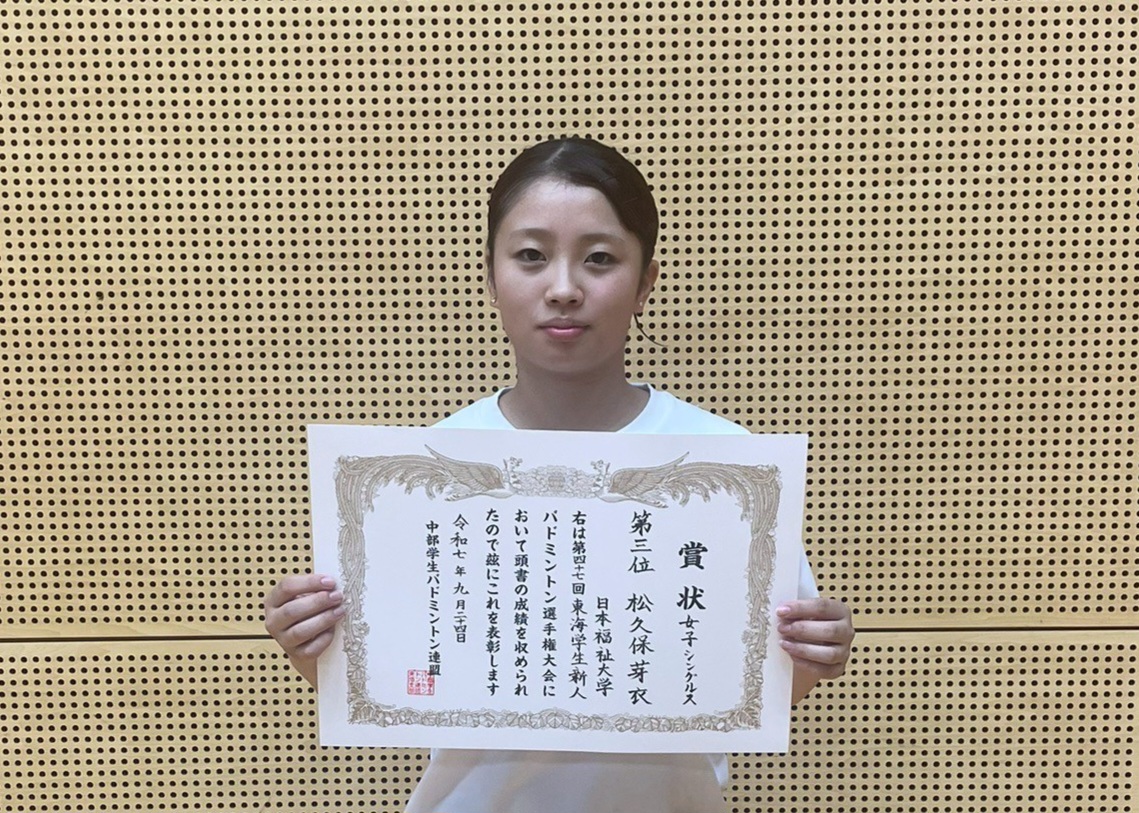 賞状
女子シングルス
第三位 松久保芽衣
日本福祉大学
右は第四十七回東海学生新人
バドミントン選手権大会に
おいて頭書の成績を収められ
たので茲にこれを表彰します
令和七年九月二十四日
中部学生バドミントン連盟